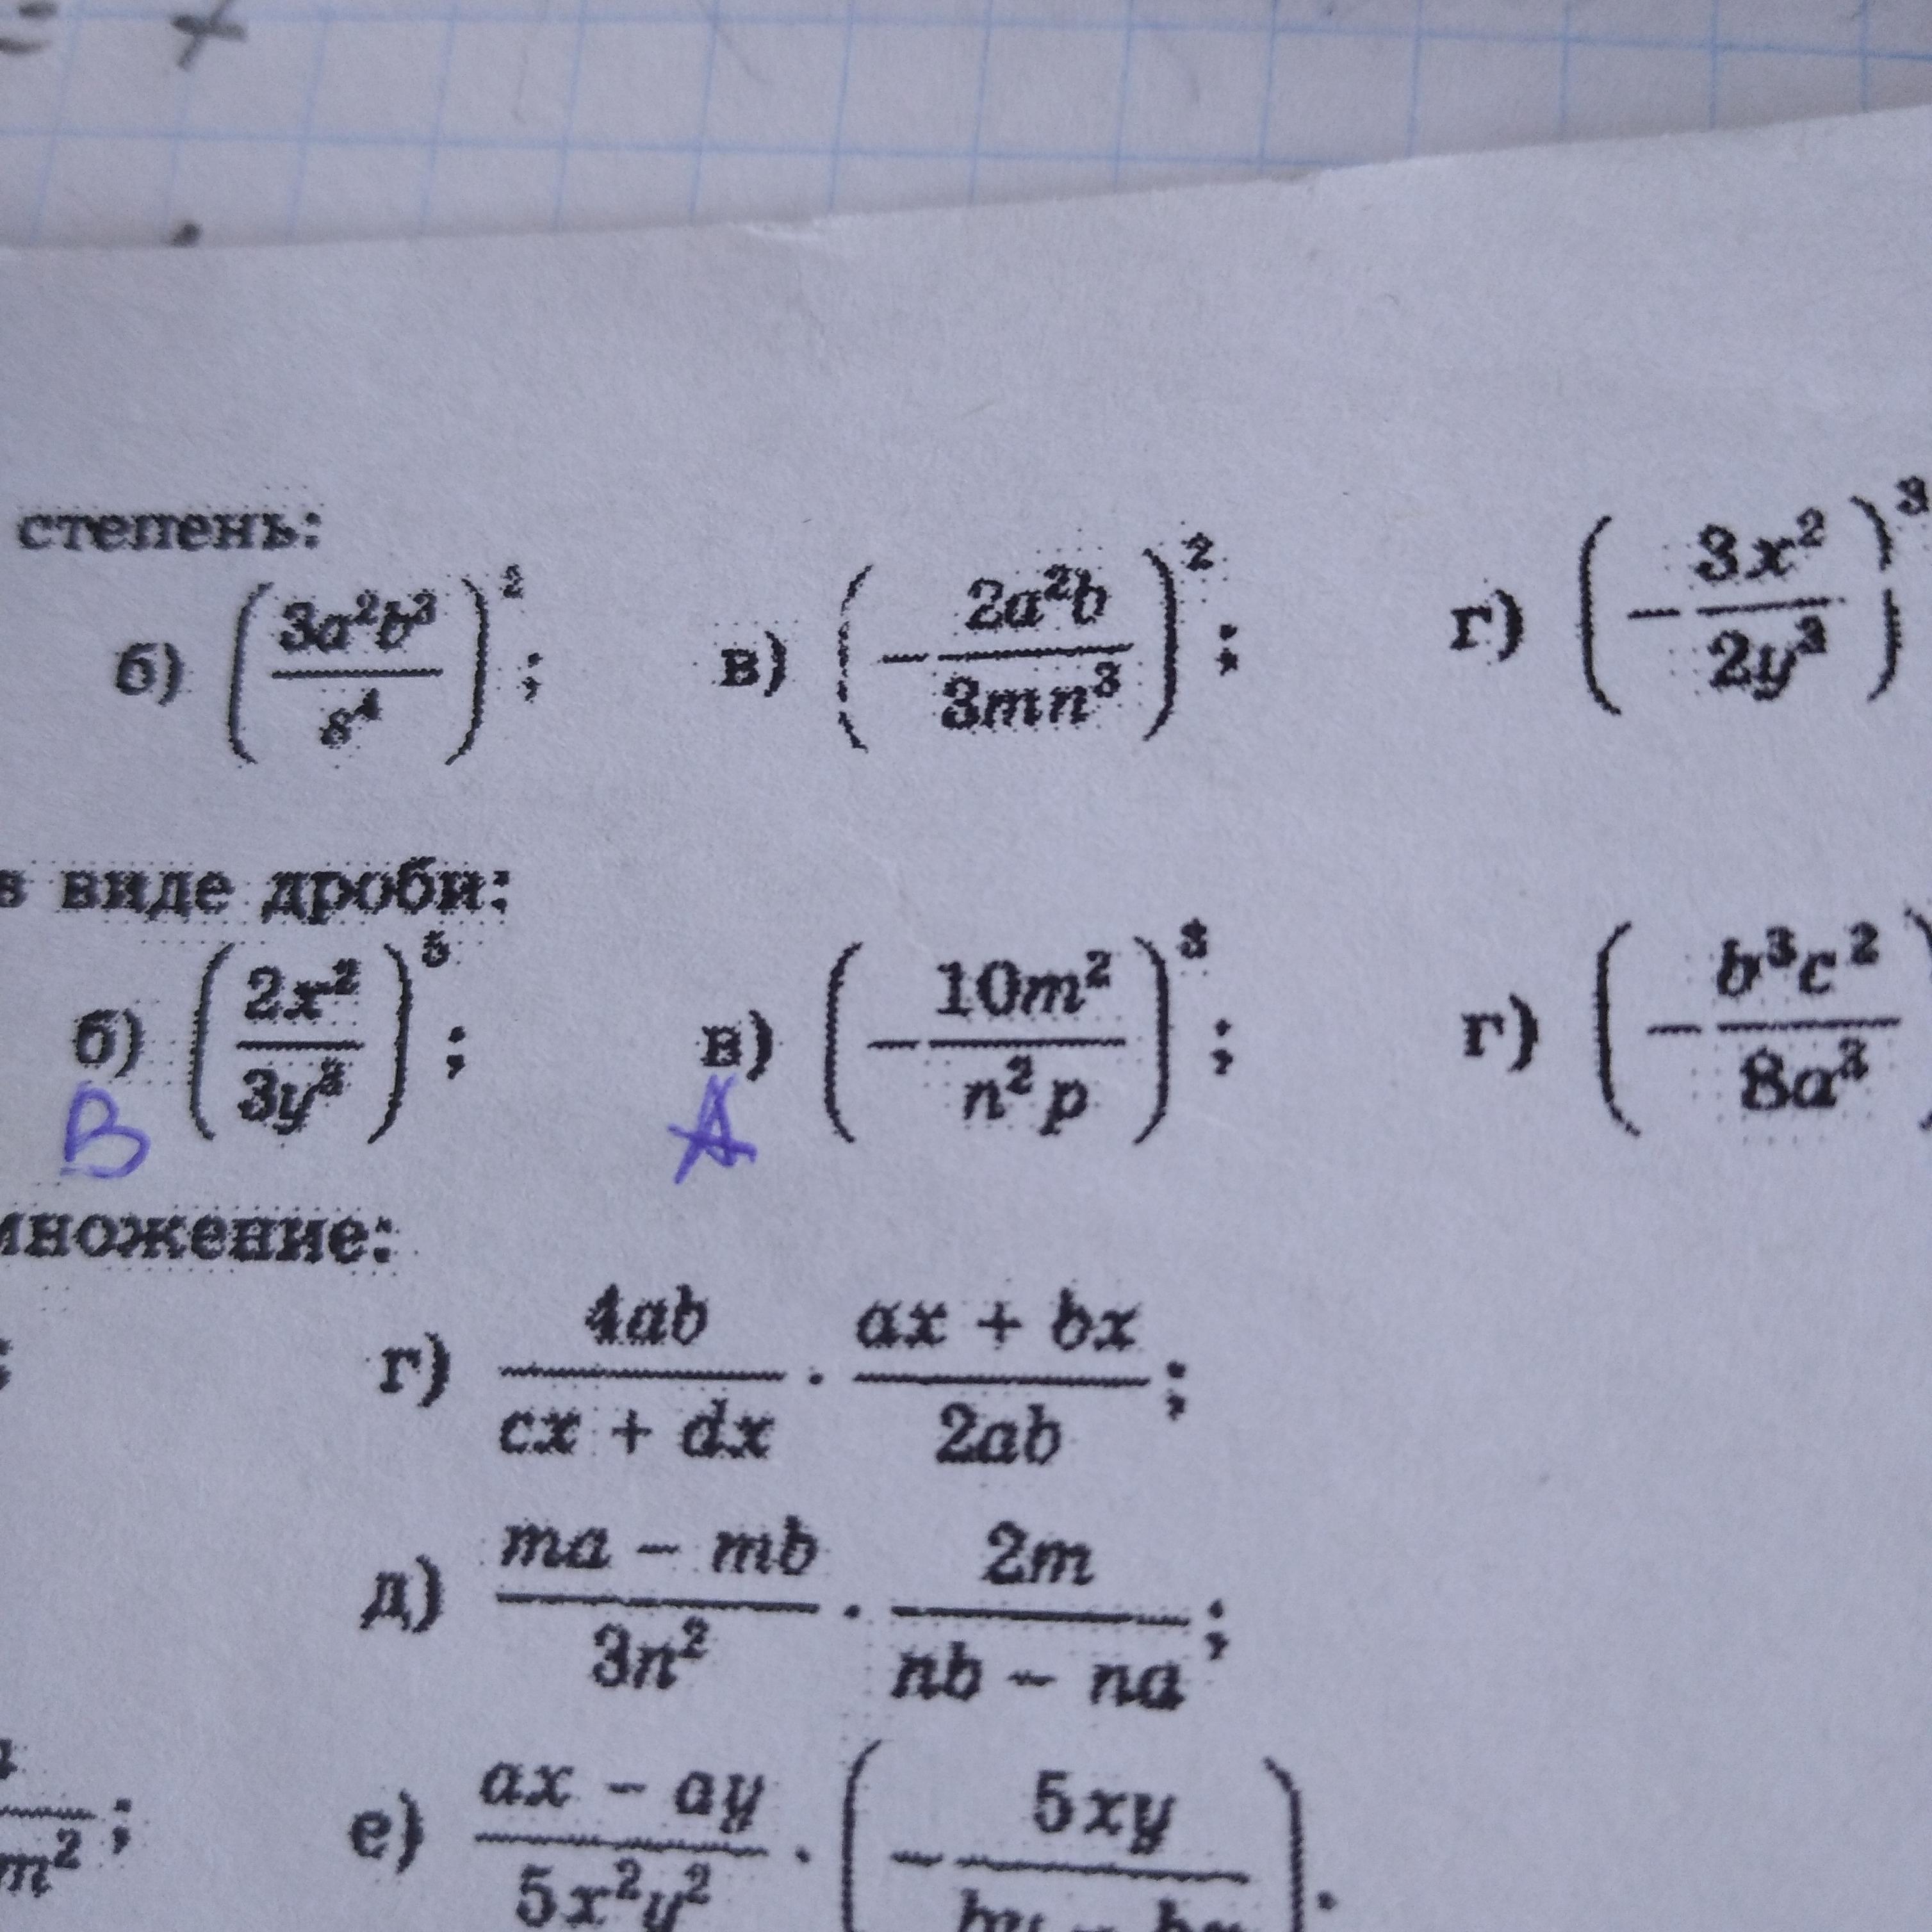 = +
степень:
б) (3a²b³/8⁴)²; в) (−2a²b/3mn³)²; г) (−3x²/2y³)³
в виде дроби:
б) (2x²/3y³)⁵; в) (−10m²/n²p)³; г) (−b³c²/8a³)
В А
множение:
; г) 4ab/(cx + dx) · (ax + bx)/2ab;
д) (ma − mb)/3n² · 2m/(nb − na);
m²; е) (ax − ay)/5x²y² · (−5xy/(by − bx)).